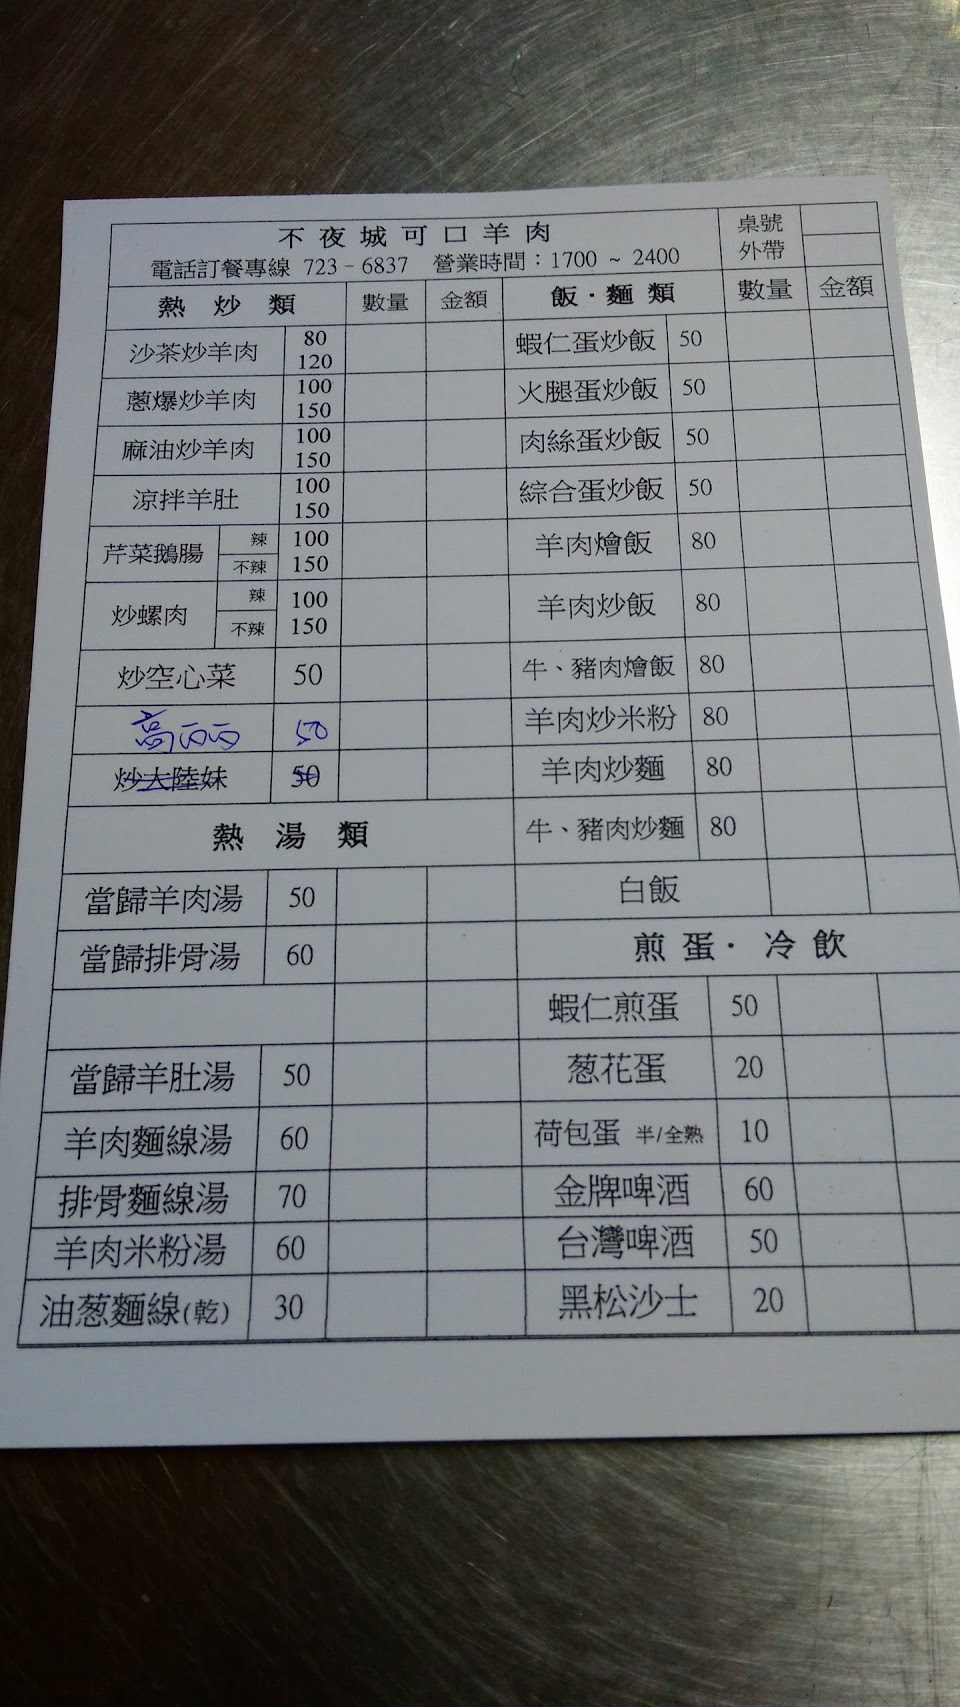 不夜城可口羊肉
電話訂餐專線 723-6837 營業時間：1700 ~ 2400
桌號
外帶
熱炒類 數量 金額
沙茶炒羊肉 80 120
蔥爆炒羊肉 100 150
麻油炒羊肉 100 150
涼拌羊肚 100 150
芹菜鵝腸 辣 不辣 100 150
炒螺肉 辣 不辣 100 150
炒空心菜 50
高丽丽 50
炒大陸妹 50
熱湯類
當歸羊肉湯 50
當歸排骨湯 60
當歸羊肚湯 50
羊肉麵線湯 60
排骨麵線湯 70
羊肉米粉湯 60
油葱麵線(乾) 30
飯·麵類 數量 金額
蝦仁蛋炒飯 50
火腿蛋炒飯 50
肉絲蛋炒飯 50
綜合蛋炒飯 50
羊肉燴飯 80
羊肉炒飯 80
牛、豬肉燴飯 80
羊肉炒米粉 80
羊肉炒麵 80
牛、豬肉炒麵 80
白飯
煎蛋·冷飲
蝦仁煎蛋 50
葱花蛋 20
荷包蛋 半/全熟 10
金牌啤酒 60
台灣啤酒 50
黑松沙士 20